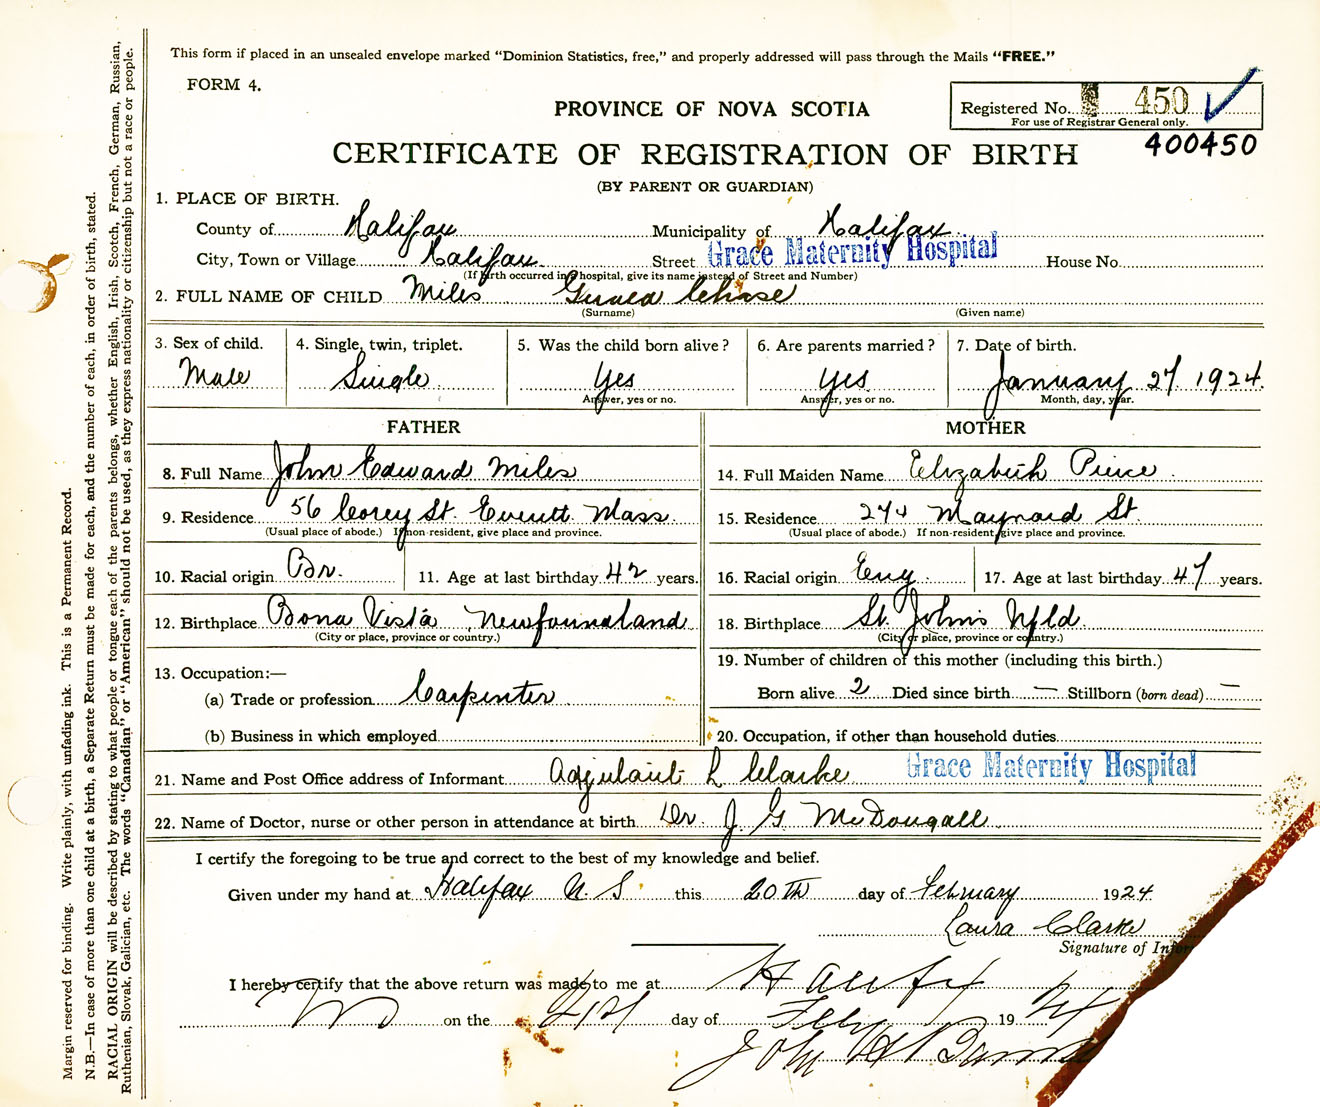 This form if placed in an unsealed envelope marked “Dominion Statistics, free,” and properly addressed will pass through the Mails “FREE.”
FORM 4.
PROVINCE OF NOVA SCOTIA
Registered No. 450
For use of Registrar General only.
400450
CERTIFICATE OF REGISTRATION OF BIRTH
(BY PARENT OR GUARDIAN)
1. PLACE OF BIRTH.
County of Halifax Municipality of Halifax
City, Town or Village Halifax Street Grace Maternity Hospital House No.
(If birth occurred in a hospital, give its name instead of Street and Number)
2. FULL NAME OF CHILD Miles Gerald Chase
(Surname) (Given name)
3. Sex of child. 4. Single, twin, triplet. 5. Was the child born alive? 6. Are parents married? 7. Date of birth.
Male Single Yes Yes January 27, 1924.
Answer, yes or no. Answer, yes or no. Month, day, year.
FATHER MOTHER
8. Full Name John Edward Miles 14. Full Maiden Name Elizabeth Pierce.
9. Residence 56 Corey St. Everett. Mass. 15. Residence 274 Maynard St.
(Usual place of abode.) If non-resident, give place and province. (Usual place of abode.) If non-resident, give place and province.
10. Racial origin Br. 11. Age at last birthday 42 years. 16. Racial origin Eng. 17. Age at last birthday 41 years.
12. Birthplace Bona Vista Newfoundland 18. Birthplace St. Johns Nfld
(City or place, province or country.) (City or place, province or country.)
13. Occupation:— 19. Number of children of this mother (including this birth.)
(a) Trade or profession Carpenter Born alive 2 Died since birth — Stillborn (born dead) —
(b) Business in which employed 20. Occupation, if other than household duties
21. Name and Post Office address of Informant Adjutant L Clarke Grace Maternity Hospital
22. Name of Doctor, nurse or other person in attendance at birth Dr. J. G. McDougall
I certify the foregoing to be true and correct to the best of my knowledge and belief.
Given under my hand at Halifax N. S this 20th day of February 1924
Laura Clarke
Signature of Infor
I hereby certify that the above return was made to me at Halifax
NS on the 21st day of Feby 19 24
John
Margin reserved for binding. Write plainly, with unfading ink. This is a Permanent Record.
N.B.—In case of more than one child at a birth, a Separate Return must be made for each, and the number of each, in order of birth, stated.
RACIAL ORIGIN will be described by stating to what people or tongue each of the parents belongs, whether English, Irish, Scotch, French, German, Russian,
Ruthenian, Slovak, Galician, etc. The words “Canadian” or “American” should not be used, as they express nationality or citizenship but not a race or people.